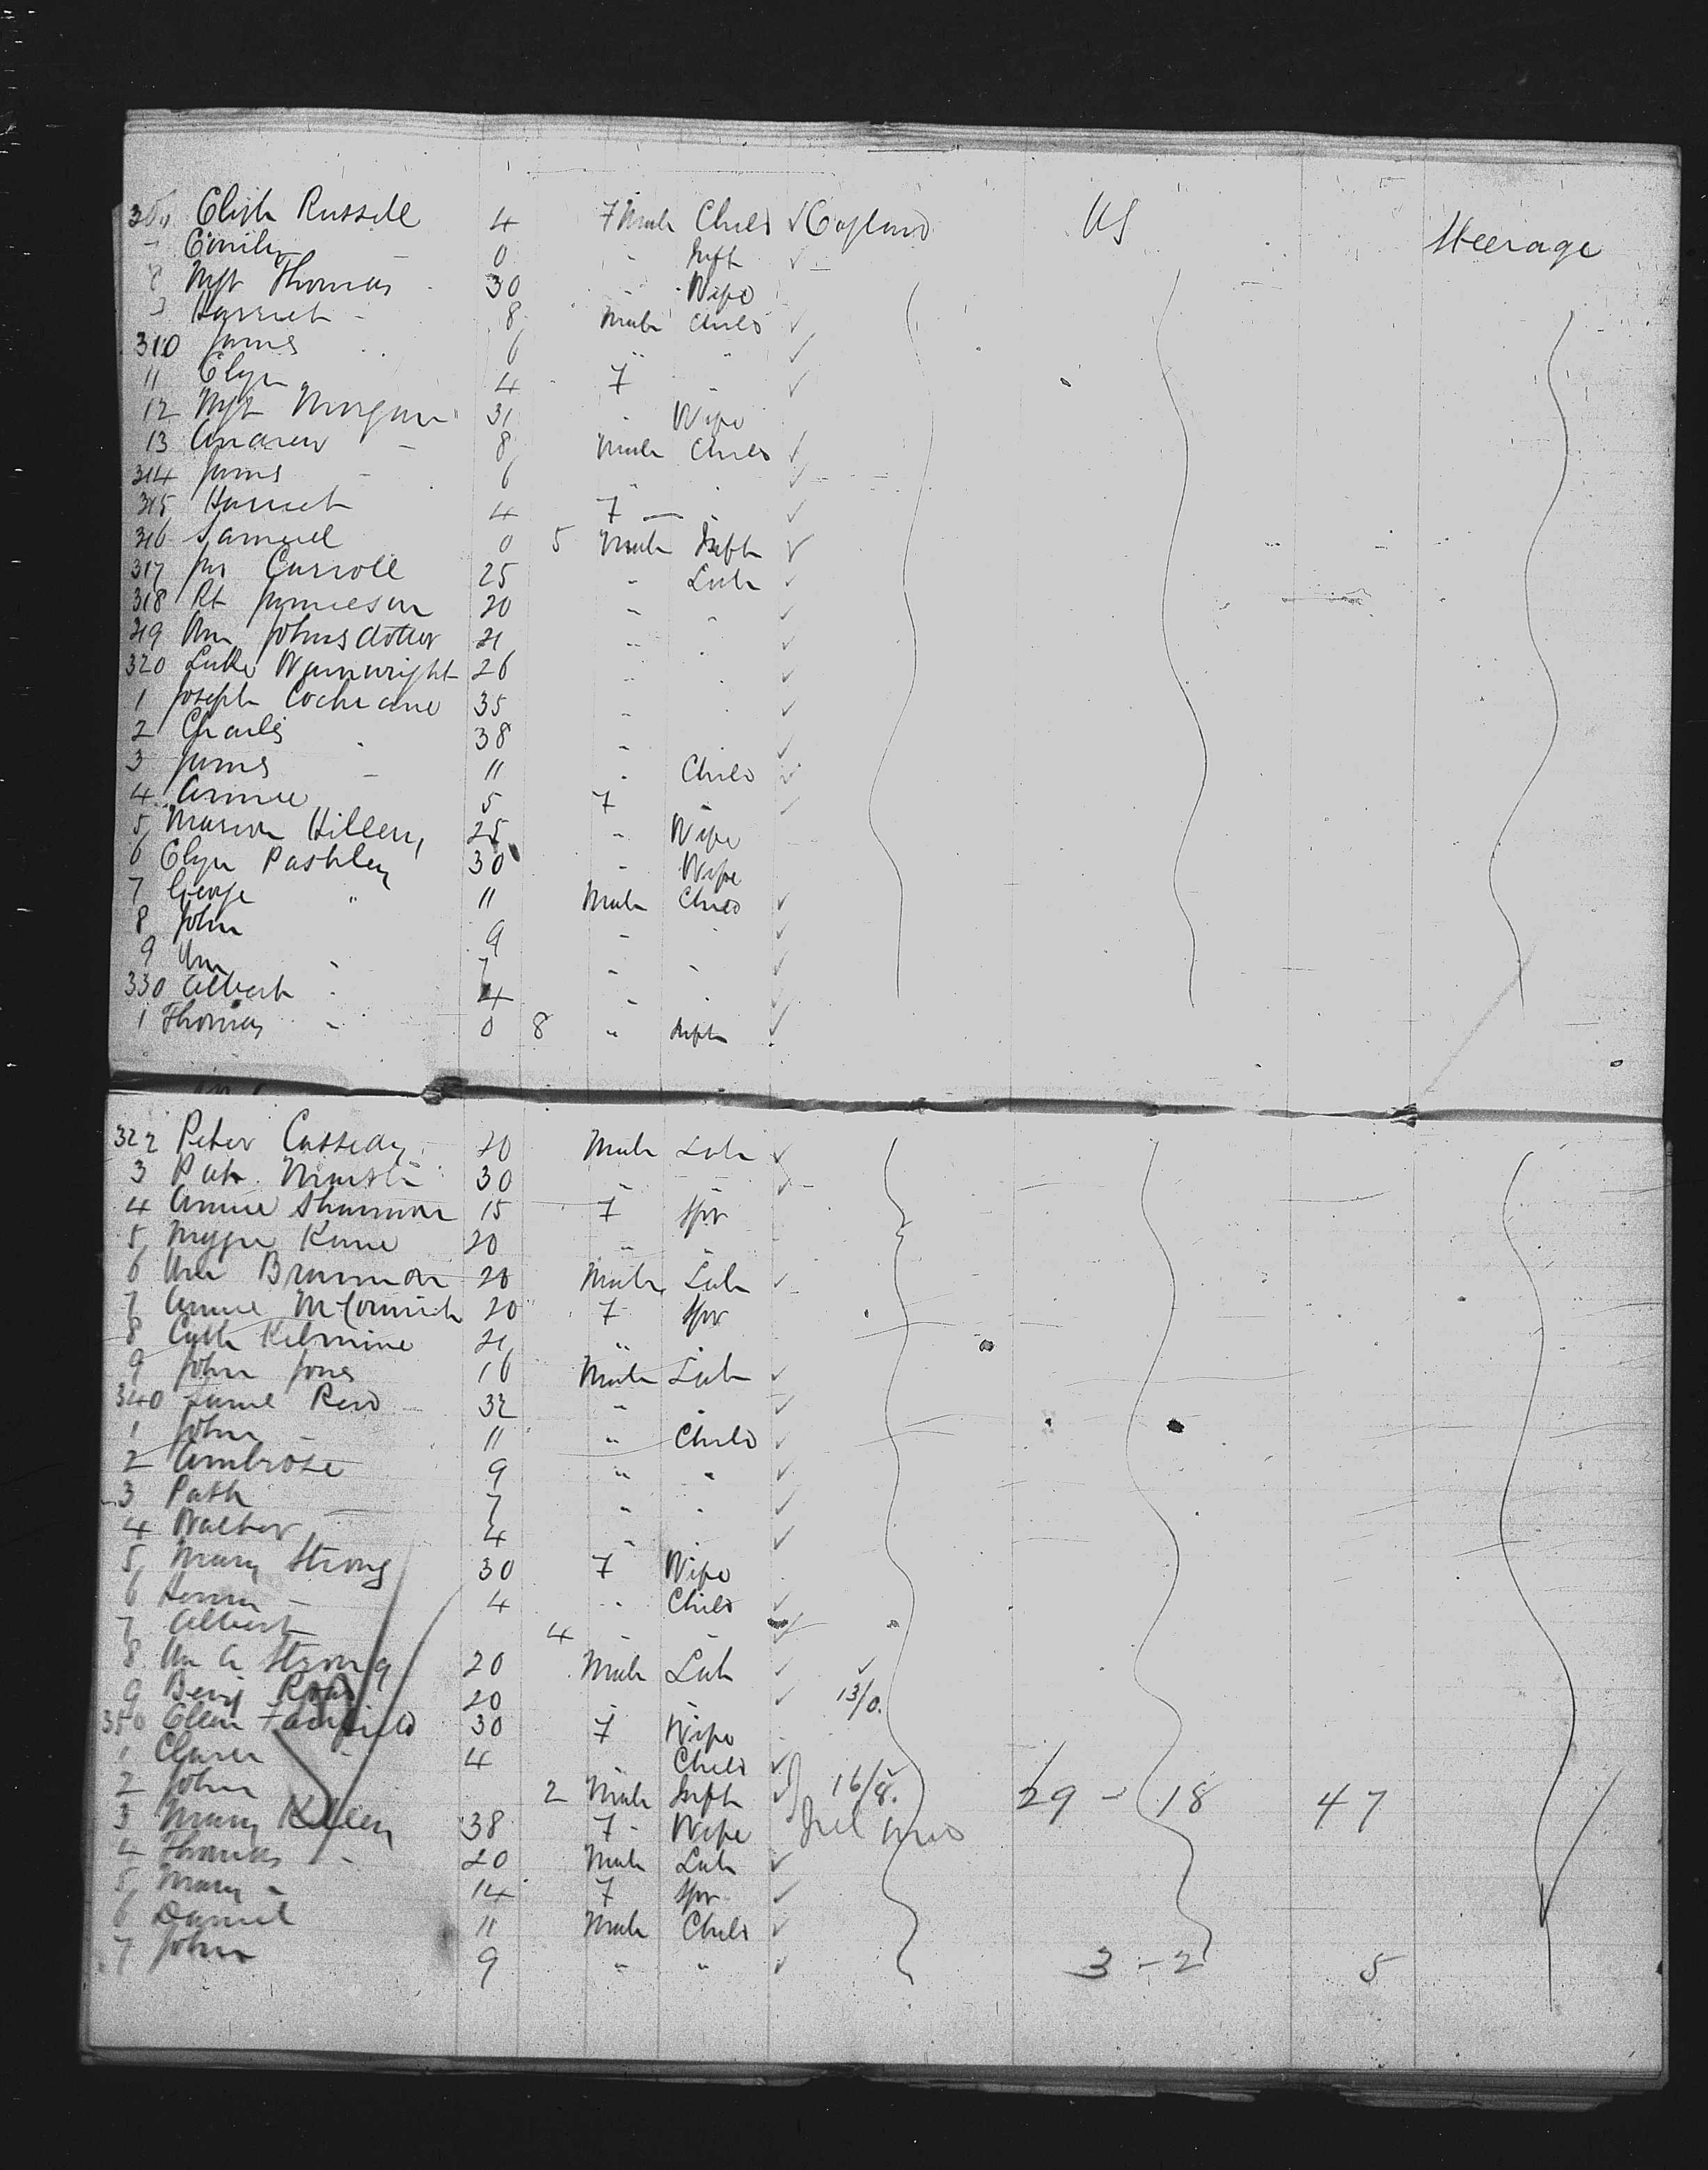 Russell 4 7 Male Child ✓ England US Steerage
Emily 0 " Inft ✓
8 Mgt Thomas 30 " Wife
9 Harriet - 8 Male Child ✓
310 James 6 " " ✓
11 Eliza 4 7 " ✓
12 Mgt Morgan 31 " Wife
13 Andrew - 8 Male Child ✓
314 James - 6 " " ✓
315 Harriet 4 7 " ✓
316 Samuel 0 5 Male Inft ✓
317 Jas Carroll 25 " Lab ✓
318 Rt Jamieson 20 " " ✓
319 Wm 21 " " ✓
320 Luke Wainwright 26 " " ✓
1 Joseph Cochrane 35 " " ✓
2 Charles " 38 " ✓
3 James - 11 " Child ✓
4 Annie 5 7 " ✓
5 Marion Hillery 25 " Wife
6 Eliza Pashley 30 " Wife
7 George " 11 Male Child ✓
8 John 9 " " ✓
9 Wm " 7 " " ✓
330 Albert " 4 " " ✓
1 Thomas " 0 8 " Inft ✓
322 Peter Cassidy 20 Male Lab ✓
3 Pat 30 " " ✓
4 Annie Shannon 15 7 Spr
5 Kane 20 " "
6 Wm Brannon 20 Male Lab ✓
7 Annie McCormick 20 7 Spr
8 Cath 21 "
9 John Jones 16 Male Lab ✓
340 32 " " ✓
1 John - 11 " Child ✓
2 Ambrose 9 " " ✓
3 Patk 7 " " ✓
4 Walter 4 " " ✓
5 Mary Strong 30 7 Wife
6 - 4 " Child ✓
7 Albert 4 " " ✓
8 Wm A Strong 20 Male Lab ✓ ✓
9 Benj 20 ✓ 13/0.
350 Ellen Fairfield 30 7 Wife
1 Clara " 4 Child ✓
2 John 2 Male Inft ✓ 16/8. 29 - 18 47
3 Mary 38 7 Wife Ireland
4 Thomas " 20 Male Lab ✓
5 Mary " 14 7 Spr ✓
6 Daniel 11 Male Child ✓
7 John 9 " " ✓ 3 - 2 5